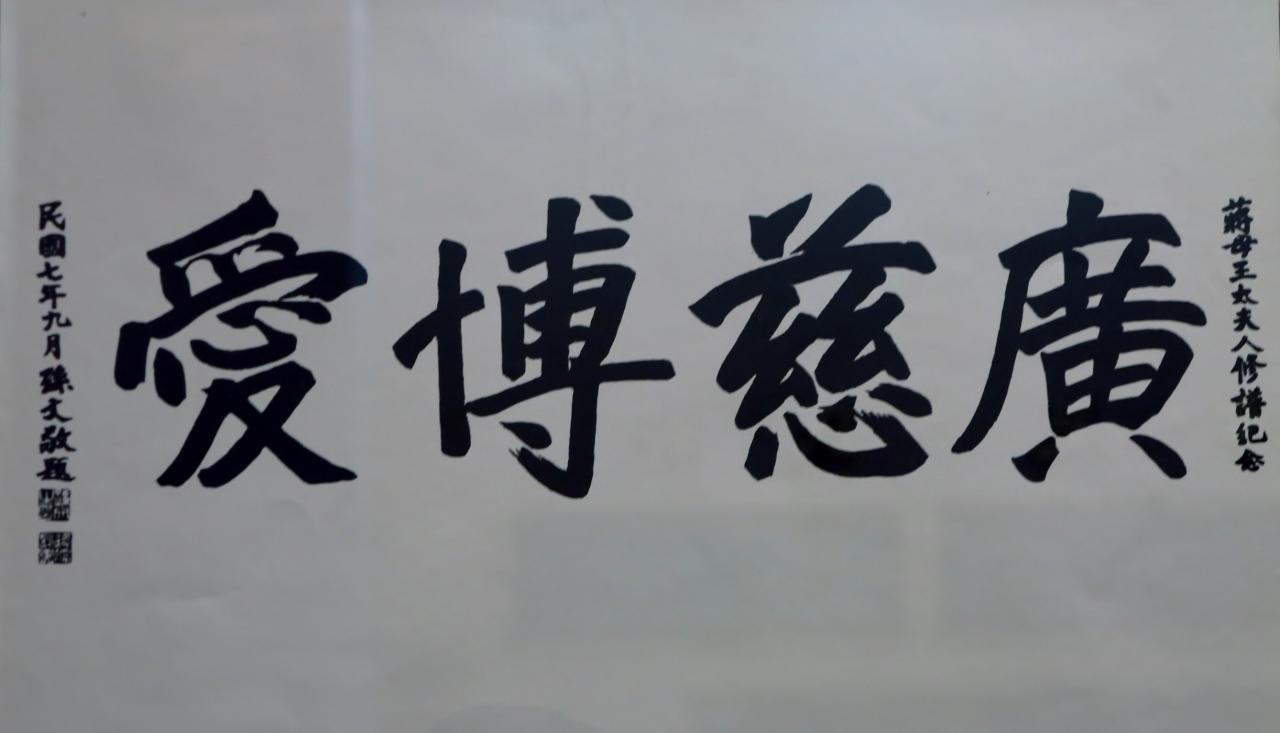 蔣母王太夫人修譜紀念
廣慈博愛
民國七年九月孫文敬題